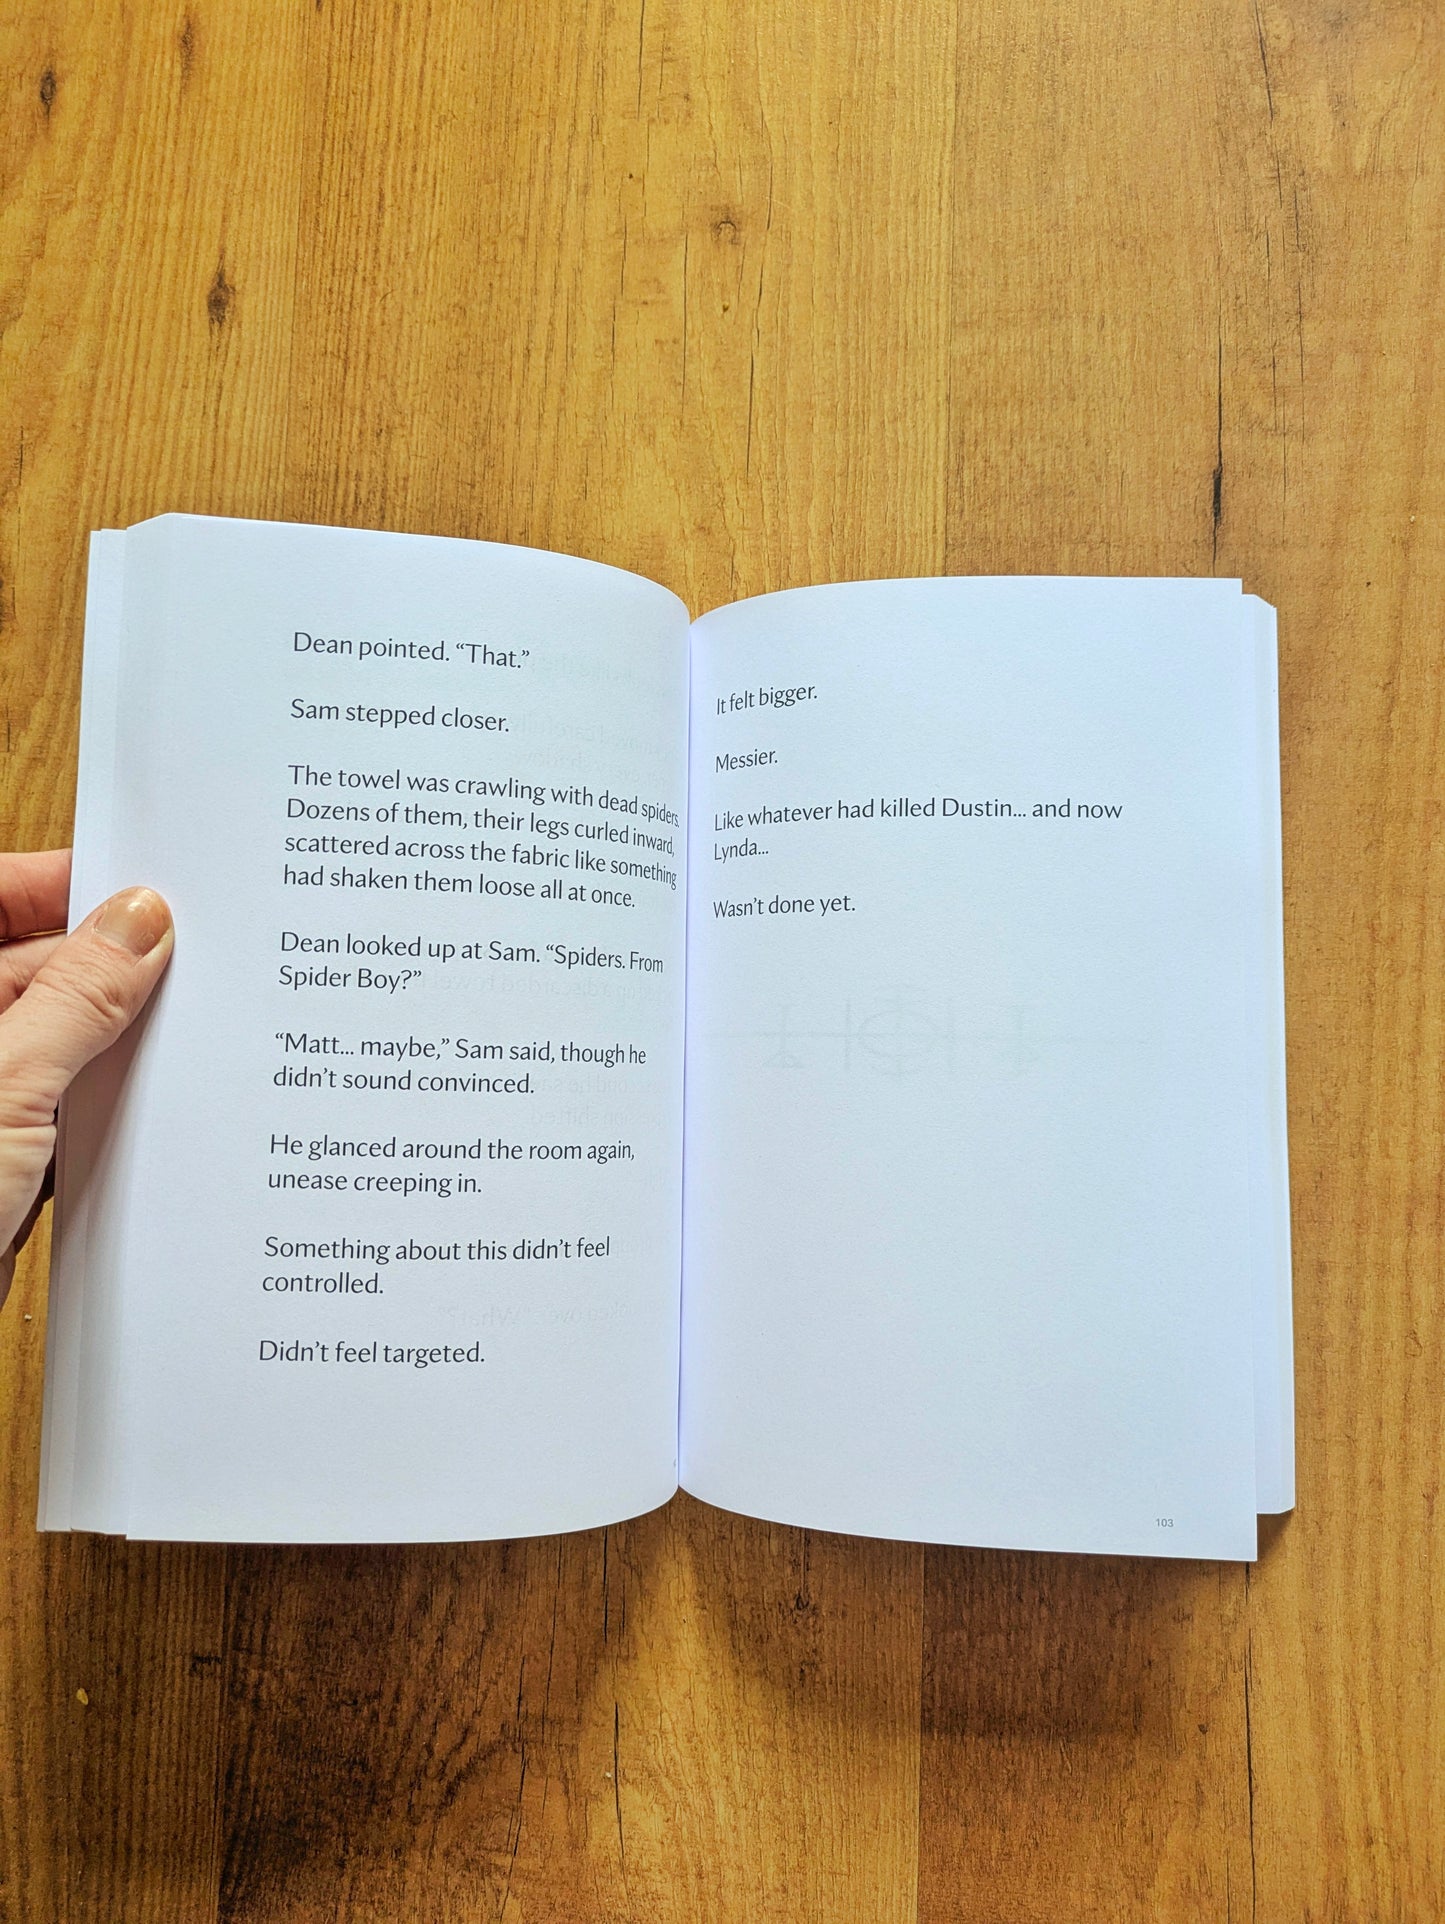 Dean pointed. “That.”
Sam stepped closer.
The towel was crawling with dead spiders.
Dozens of them, their legs curled inward,
scattered across the fabric like something
had shaken them loose all at once.
Dean looked up at Sam. “Spiders. From
Spider Boy?”
“Matt... maybe,” Sam said, though he
didn’t sound convinced.
He glanced around the room again,
unease creeping in.
Something about this didn’t feel
controlled.
Didn’t feel targeted.
It felt bigger.
Messier.
Like whatever had killed Dustin... and now
Lynda...
Wasn’t done yet.
103